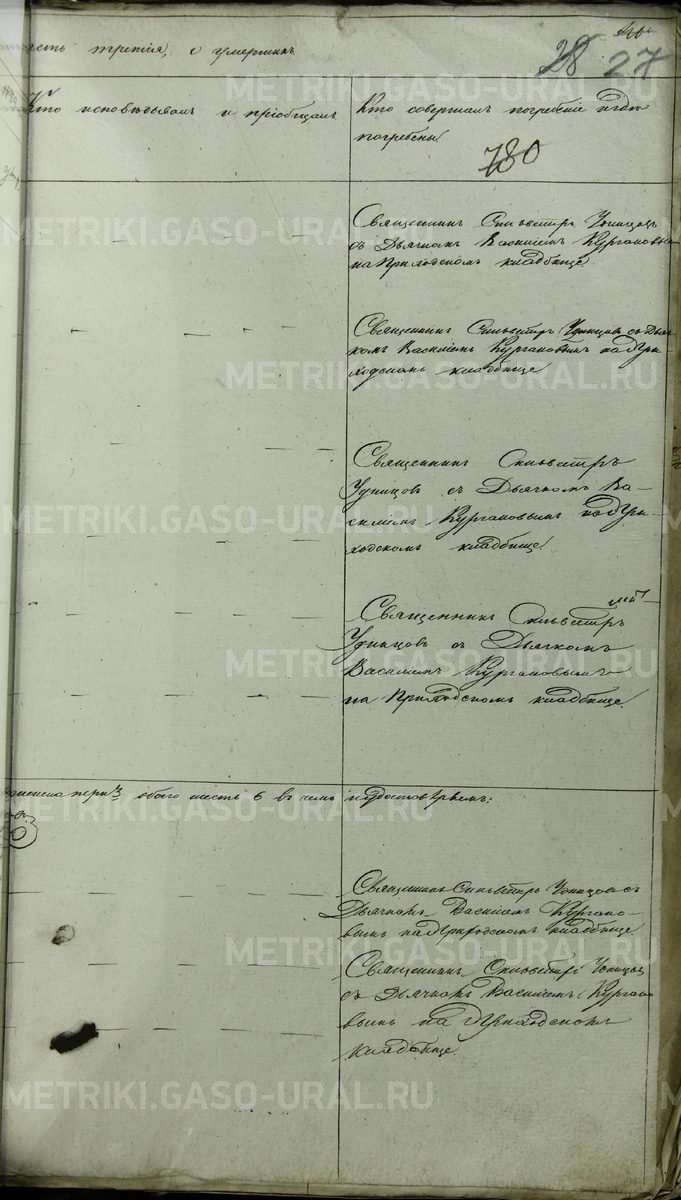 асть третія, о умершихъ
28 27
Кто исповѣдывалъ и пріобщалъ
Кто совершалъ погребеніе и гдѣ
погребены
780
Священникъ Сильвестръ Удинцовъ
съ Дьячкомъ Василіемъ Кургановы
на Приходскомъ кладбище
Священникъ Сильвестръ Удинцовъ съ Дьяч
комъ Василіемъ Кургановымъ на При
ходскомъ кладбище
Священникъ Сильвестръ
Удинцовъ съ Дьячкомъ Ва-
силіемъ Кургановымъ на При
ходскомъ кладбище
Священникъ Сильвестръ
Удинцовъ съ Дьячкомъ
Василіемъ Кургановымъ
на Приходскомъ кладбище
обоего шесть 6 въ чемъ и удостовѣряемъ:
Священникъ Сильвестръ Удинцовъ съ
Дьячкомъ Василіемъ Кургано-
вымъ на Приходскомъ кладбище
Священникъ Сильвестръ Удинцовъ
съ Дьячкомъ Василіемъ Кургано
вымъ на Приходскомъ
кладбище
METRIKI.GASO-URAL.RU